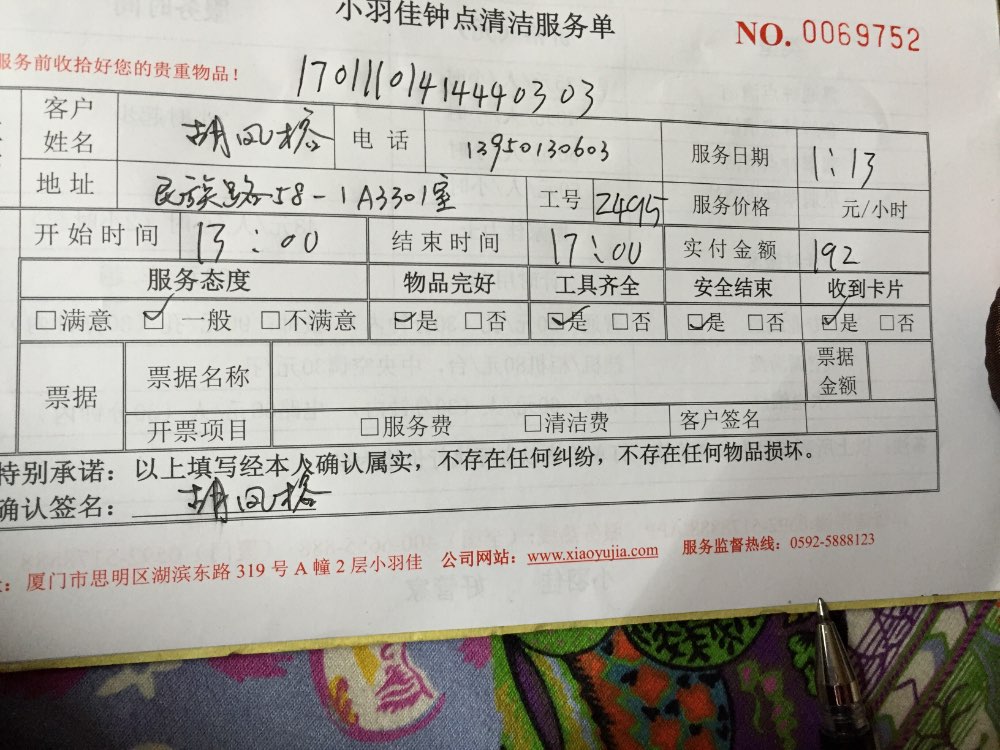 小羽佳钟点清洁服务单
NO. 0069752
服务前收拾好您的贵重物品！
17011101414440303
客户姓名 胡凤榕 电话 13950130603 服务日期 1:13
地址 民族路58-1A3301室 工号 24915 服务价格 元/小时
开始时间 13:00 结束时间 17:00 实付金额 192
服务态度 物品完好 工具齐全 安全结束 收到卡片
□满意 ☑一般 □不满意 ☑是 □否 ☑是 □否 ☑是 □否 ☑是 □否
票据 票据名称 票据金额
开票项目 □服务费 □清洁费 客户签名
特别承诺：以上填写经本人确认属实，不存在任何纠纷，不存在任何物品损坏。
确认签名： 胡凤榕
：厦门市思明区湖滨东路 319 号 A 幢 2 层小羽佳 公司网站：www.xiaoyujia.com 服务监督热线：0592-5888123